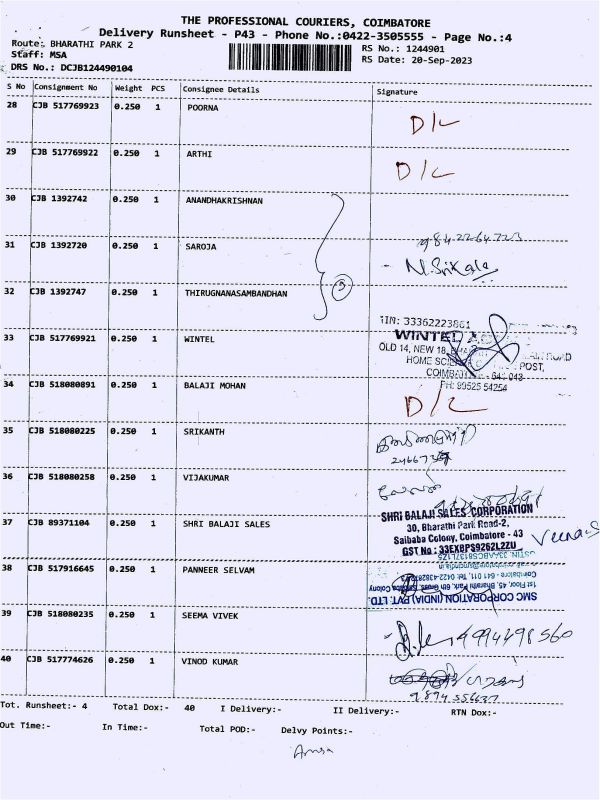 THE PROFESSIONAL COURIERS, COIMBATORE
Delivery Runsheet - P43 - Phone No.:0422-3505555 - Page No.:4
Route: BHARATHI PARK 2
RS No.: 1244901
Staff: MSA
RS Date: 20-Sep-2023
DRS No.: DCJB124490104
S No Consignment No Weight PCS Consignee Details Signature
28 CJB 517769923 0.250 1 POORNA D/L
29 CJB 517769922 0.250 1 ARTHI D/L
30 CJB 1392742 0.250 1 ANANDHAKRISHNAN
31 CJB 1392720 0.250 1 SAROJA
N.Srikala
32 CJB 1392747 0.250 1 THIRUGNANASAMBANDHAN
3
TIN: 33362223861
33 CJB 517769921 0.250 1 WINTEL
WINTEL
OLD 14, NEW 18, ROAD
HOME POST,
PH: 99525 54254
34 CJB 518080891 0.250 1 BALAJI MOHAN D/L
35 CJB 518080225 0.250 1 SRIKANTH
36 CJB 518080258 0.250 1 VIJAKUMAR
37 CJB 89371104 0.250 1 SHRI BALAJI SALES
SHRI BALAJI SALES CORPORATION
30, Bharathi Park Road-2,
Saibaba Colony, Coimbatore - 43
GST No : 33EXBPS9262L2ZU
38 CJB 517916645 0.250 1 PANNEER SELVAM
SMC CORPORATION (INDIA) PVT. LTD.
1st Floor, 45, Bharathi Park, 6th Cross, Colony
39 CJB 518080235 0.250 1 SEEMA VIVEK
4994498560
40 CJB 517774626 0.250 1 VINOD KUMAR
Tot. Runsheet:- 4 Total Dox:- 40 I Delivery:- II Delivery:- RTN Dox:-
Out Time:- In Time:- Total POD:- Delvy Points:-